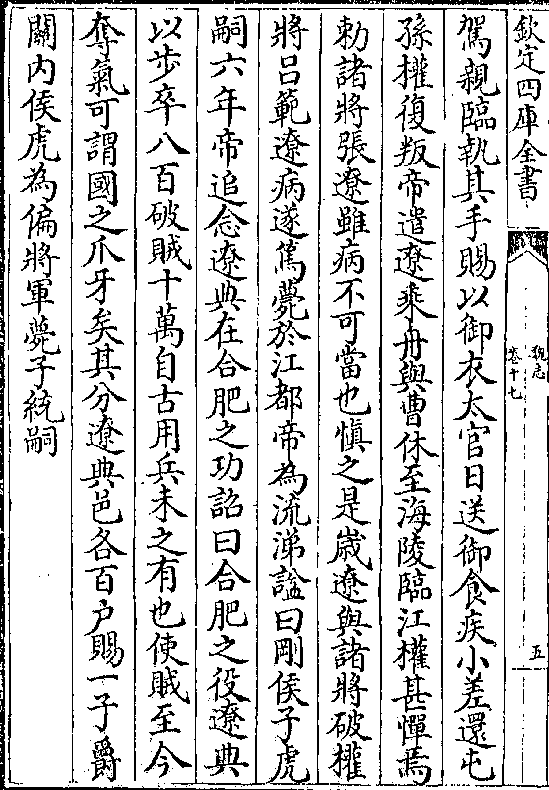 欽定四庫全書
魏志
卷十七
五
駕親臨執其手賜以御衣太官日送御食疾小差還屯
孫權復叛帝遣遼乘舟與曹休至海陵臨江權甚憚焉
勅諸將張遼雖病不可當也慎之是歲遼與諸將破權
將呂範遼病遂篤薨於江都帝為流涕諡曰剛侯子虎
嗣六年帝追念遼典在合肥之功詔曰合肥之役遼典
以步卒八百破賊十萬自古用兵未之有也使賊至今
奪氣可謂國之爪牙矣其分遼典邑各百户賜一子爵
關内侯虎為偏將軍薨子統嗣